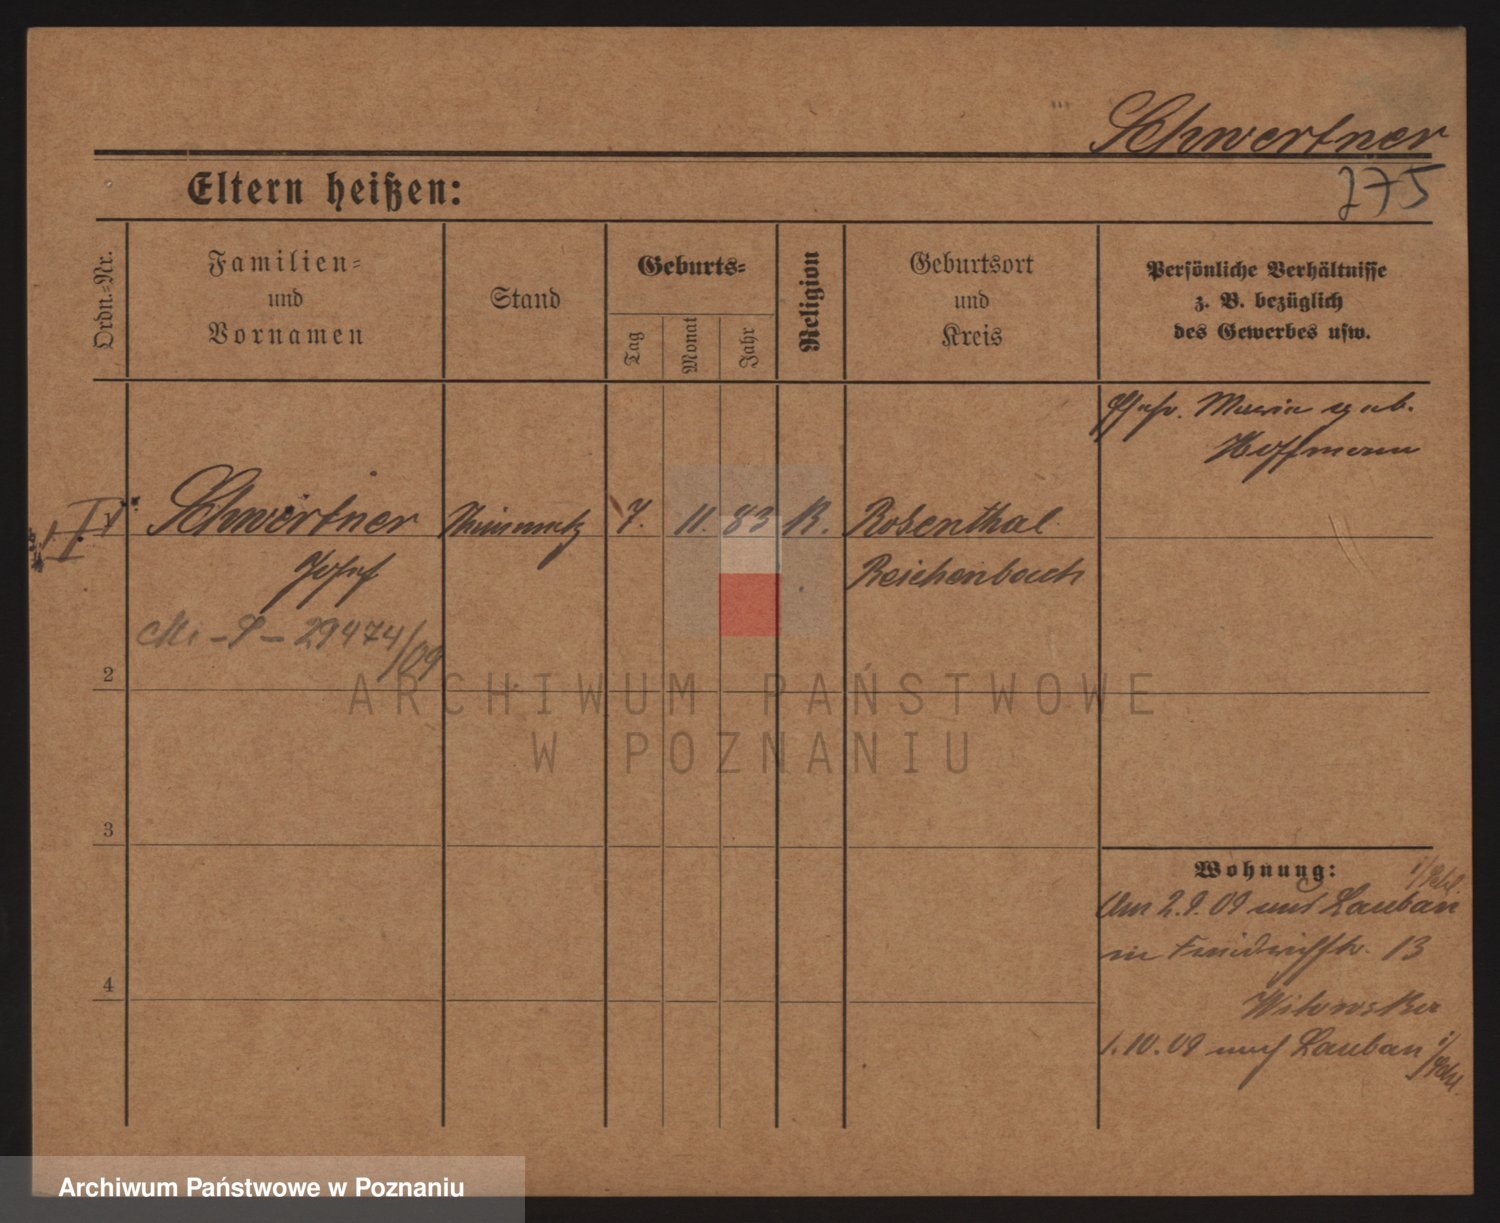 Schwertner
275
Eltern heißen:
Ordn.-Nr.
Familien-
und
Vornamen
Stand
Geburts-
Tag
Monat
Jahr
Religion
Geburtsort
und
Kreis
Persönliche Verhältnisse
z. B. bezüglich
des Gewerbes usw.
Ehefr. Maria geb.
Hoffmann
1
Schwertner
Steinmetz
7.
11.
83
K.
Rosenthal
Josef
Reichenbach
29474/09
2
ARCHIWUM PAŃSTWOWE
W POZNANIU
3
Wohnung:
Am 2.9.09 aus Lauban i/Schl.
in Friedrichstr. 13
Witowska
1.10.09 nach Lauban i/Schl.
4
Archiwum Państwowe w Poznaniu